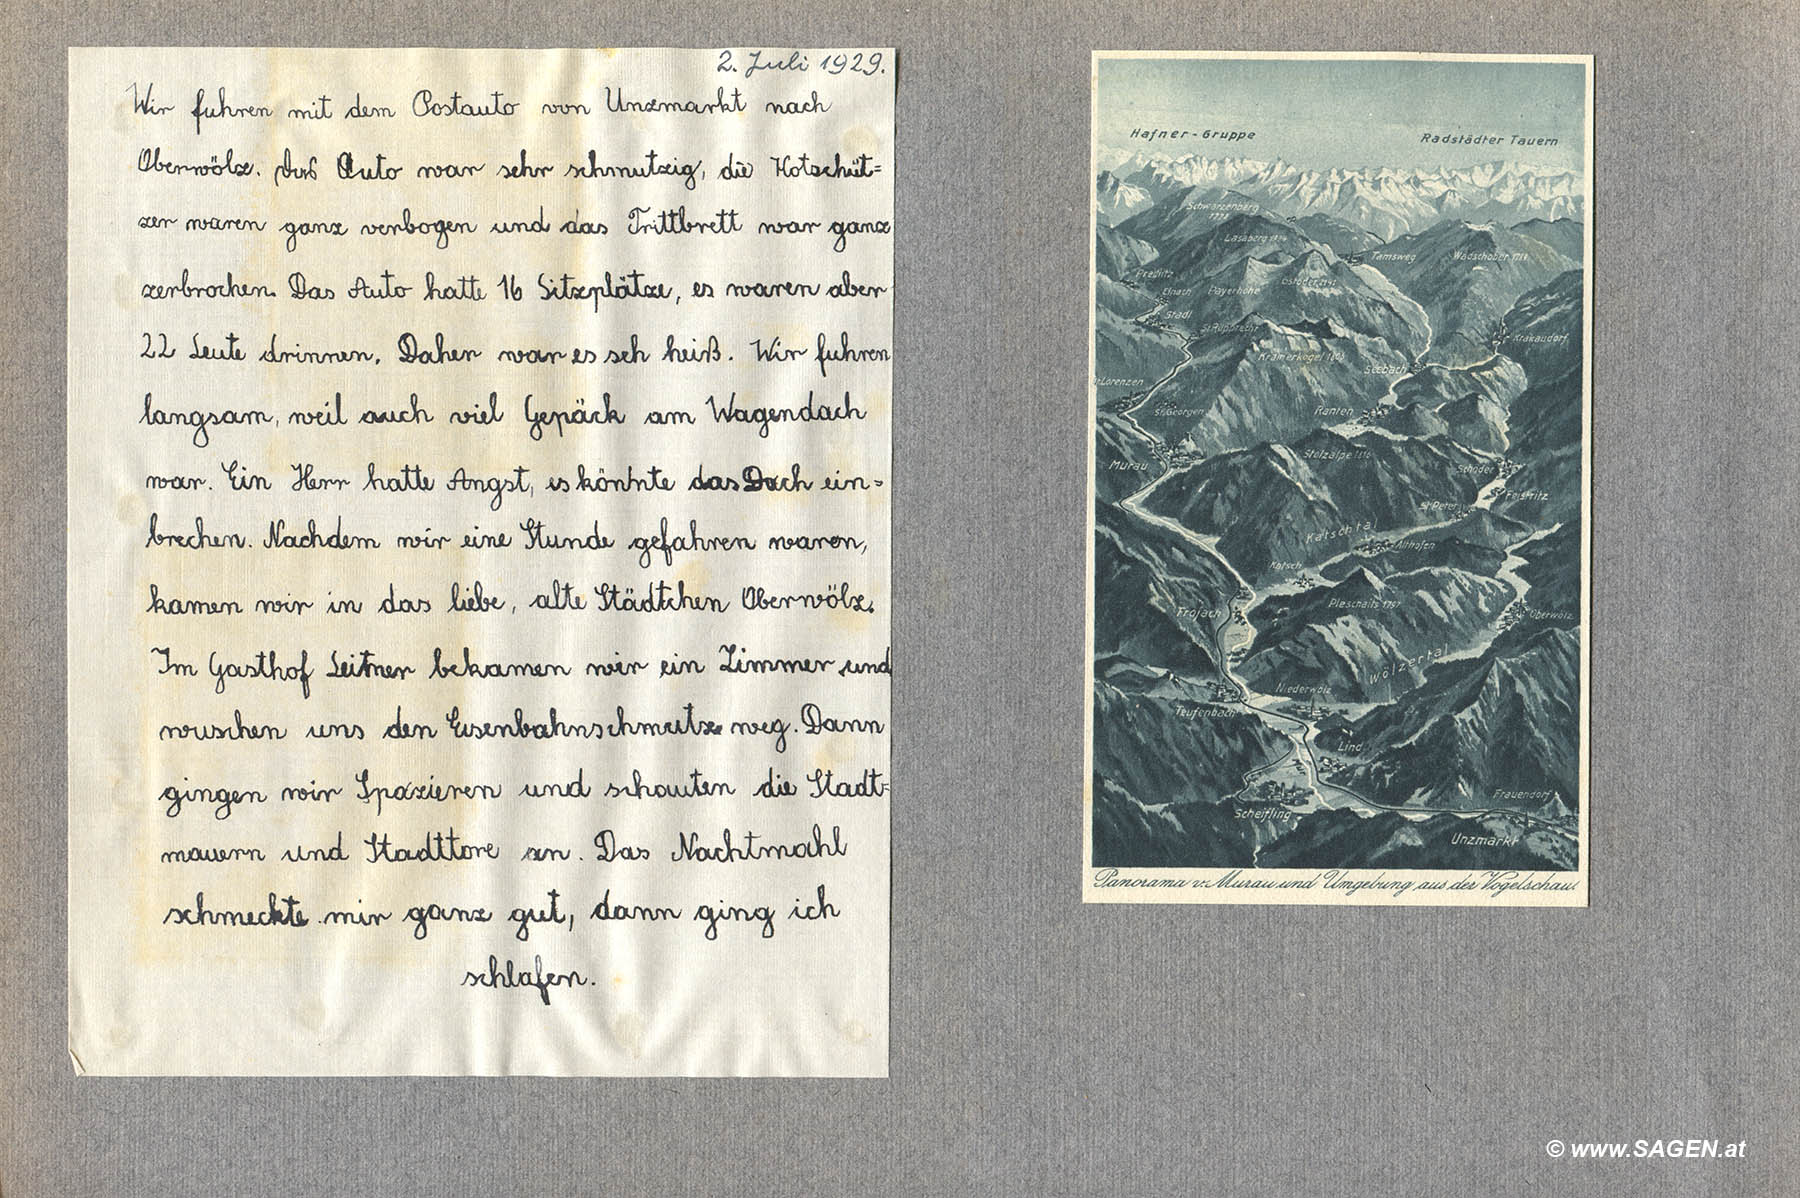 2. Juli 1929.
Wir fuhren mit dem Postauto von Unzmarkt nach
Oberwölz. Das Auto war sehr schmutzig, die Kotschüt=
zer waren ganz verbogen und das Trittbrett war ganz
zerbrochen. Das Auto hatte 16 Sitzplätze, es waren aber
22 Leute drinnen. Daher war es seh heiß. Wir fuhren
langsam, weil auch viel Gepäck am Wagendach
war. Ein Herr hatte Angst, es könnte das Dach ein=
brechen. Nachdem wir eine Stunde gefahren waren,
kamen wir in das liebe, alte Städtchen Oberwölz.
Im Gasthof Leitner bekamen wir ein Zimmer und
wuschen uns den Eisenbahnschmutz weg. Dann
gingen wir Spazieren und schauten die Stadt=
mauern und Stadttore an. Das Nachtmahl
schmeckte mir ganz gut, dann ging ich
schlafen.
Hafner-Gruppe
Radstädter Tauern
Schwarzenberg
1778
Lasaberg
Tamsweg
Wadschober
Predlitz
Einach
Payerhöhe
Stadl
St. Ruprecht
Krakaudorf
Kramerkogel
Seebach
Lorenzen
St. Georgen
Ranten
Murau
Stolzalpe
Schöder
Feistritz
St. Peter
Katschtal
Althofen
Katsch
Frojach
Pleschaits 1797
Oberwölz
Wölzertal
Niederwölz
Teufenbach
Lind
Mur
Scheifling
Frauendorf
Unzmarkt
Panorama v. Murau und Umgebung aus der Vogelschau
© www.SAGEN.at